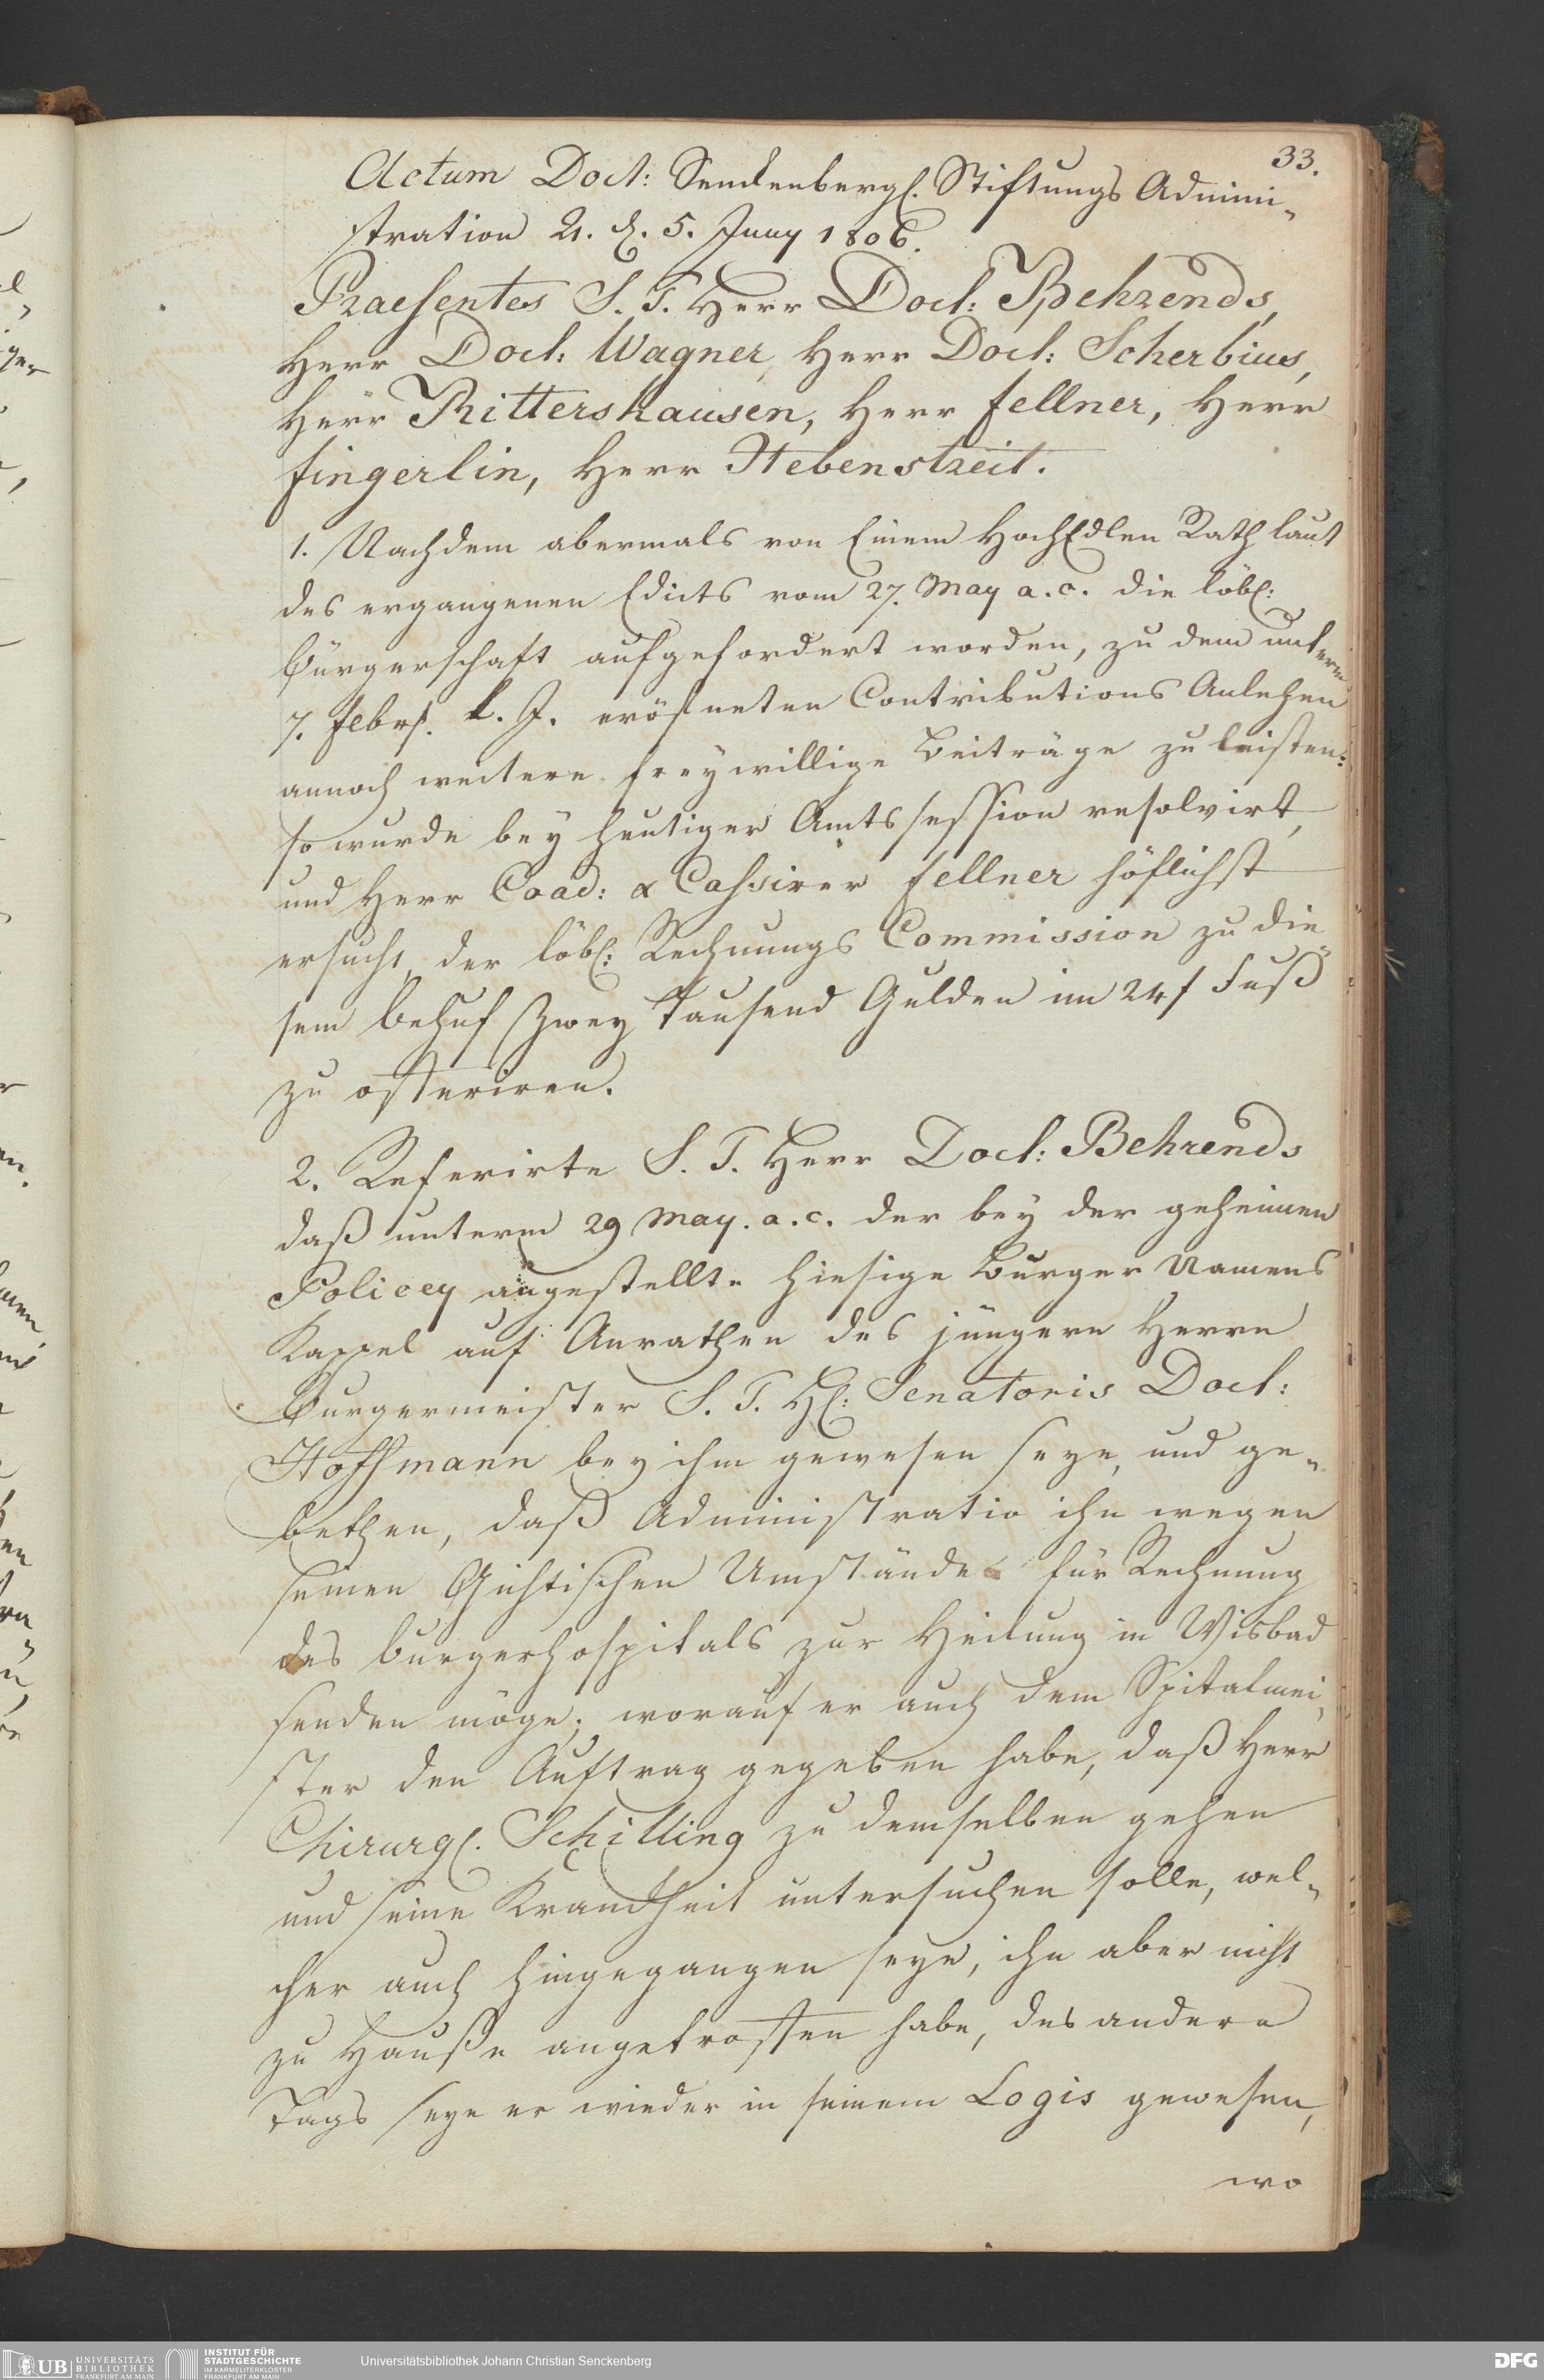 33.
Actum Doct: Senckenbergl. Stiftungs Admini„
stration A. d. 5. Juny 1806.
Praesentes S. T. Herr Doct: Behrends,
Herr Doct: Wagner, Herr Doct: Scherbius,
Herr Rittershausen, Herr Fellner, Herr
Fingerlin, Herr Hebenstreit.
1. Nachdem abermals von Einem HochEdlen Rath laut
des ergangenen Edicts vom 27. May a. c. die löbl:
Bürgerschaft aufgefordert worden, zu dem unterm
7. Febr. l. J. eröfneten Contributions Anlehen
annoch weitere freywillige Beiträge zu leisten:
so wurde bey heutiger Amtssession resolvirt,
und Herr Coad: & Cassirer Fellner höflichst
ersucht, der löbl: Rechnungs Commission zu die„
sem Behuf Zwey Tausend Gulden im 24f Fuß
zu offeriren.
2. Referirte S. T. Herr Doct: Behrends
daß unterm 29 May. a. c. der bey der geheimen
Policey angestellte hiesige Burger Namens
Kappel auf Anrathen des jüngern Herrn
Burgermeister S. T. H: Senatoris Doct:
Hoffmann bey ihm gewesen seye, und ge„
bethen, daß Administratio ihn wegen
seinen Gichtischen Umstände für Rechnung
des burgerhospitals zur Heilung in Wisbad
senden möge; worauf er auch dem Spitalmei„
ster den Auftrag gegeben habe, daß Herr
Chirurg. Schilling zu demselben gehen
und seine Kranckheit untersuchen solle, wel„
cher auch hingegangen seye, ihn aber nicht
zu Hauße angetroffen habe, des andern
Tags seye er wieder in seinem Logis gewesen,
wo
UB UNIVERSITÄTS
BIBLIOTHEK
FRANKFURT AM MAIN
INSTITUT FÜR
STADTGESCHICHTE
IM KARMELITERKLOSTER
FRANKFURT AM MAIN
Universitätsbibliothek Johann Christian Senckenberg
DFG